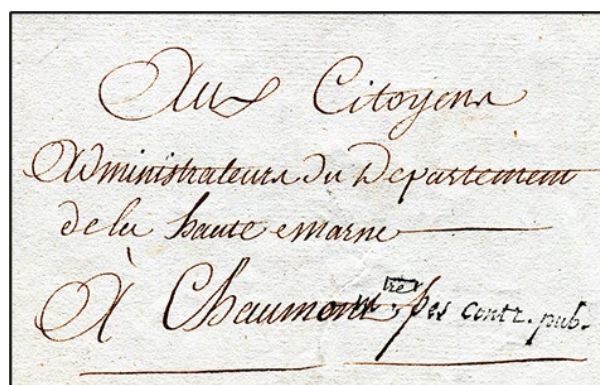 Aux Citoyens
Administrateurs du Departement
de la haute marne
À Chaumont. pes contr. pub.